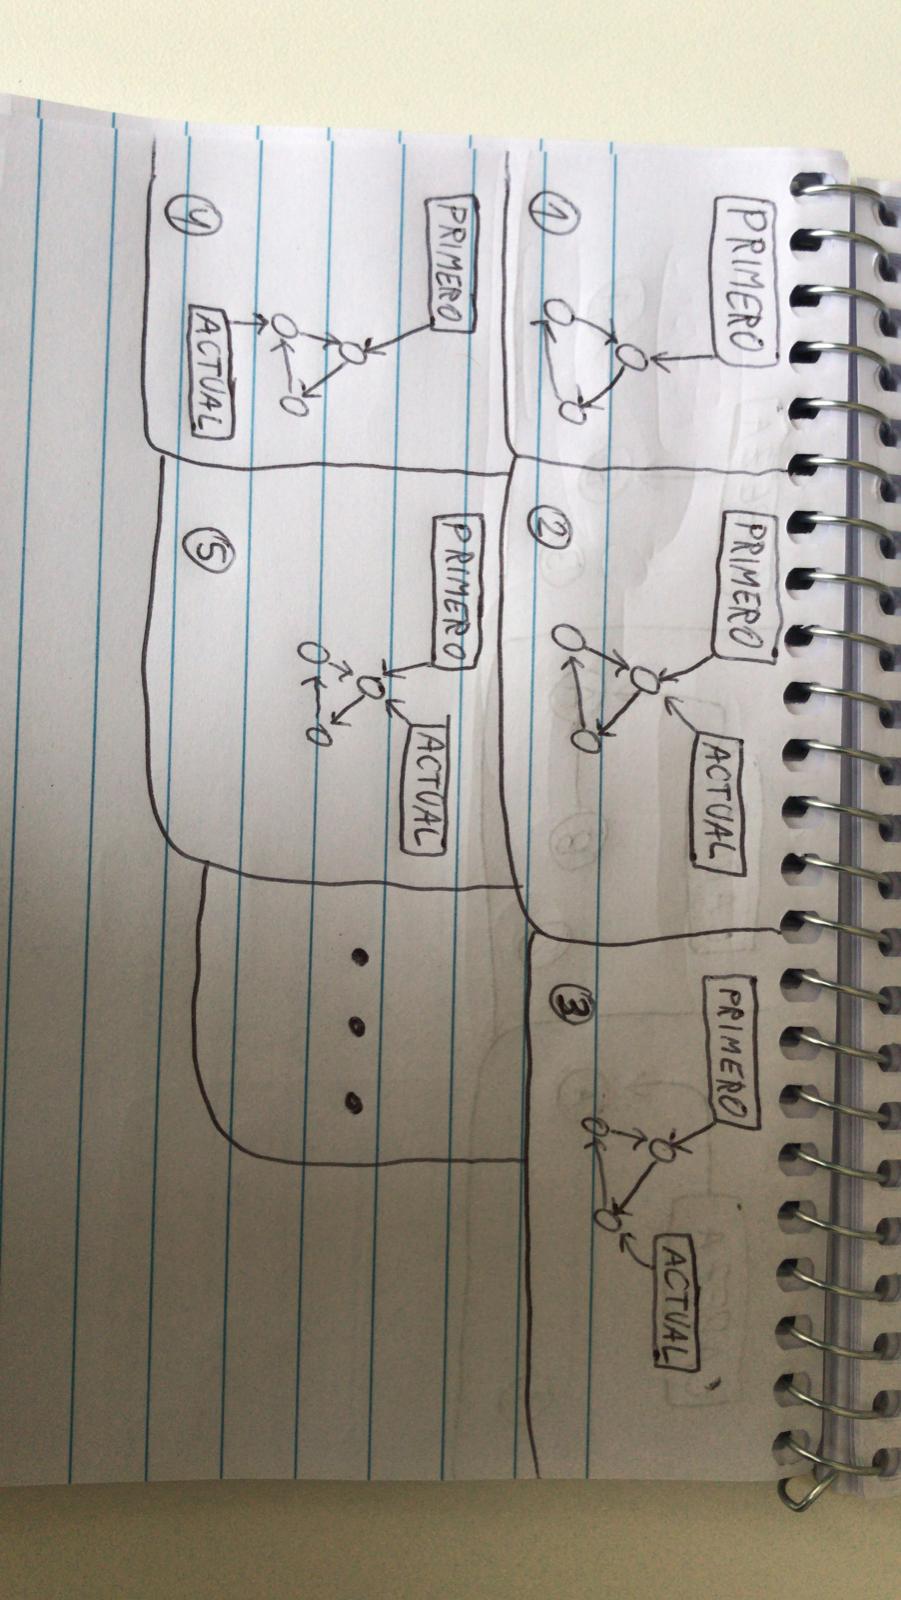 PRIMERO
1
PRIMERO
ACTUAL
2
PRIMERO
ACTUAL
3
PRIMERO
ACTUAL
4
PRIMERO
ACTUAL
5